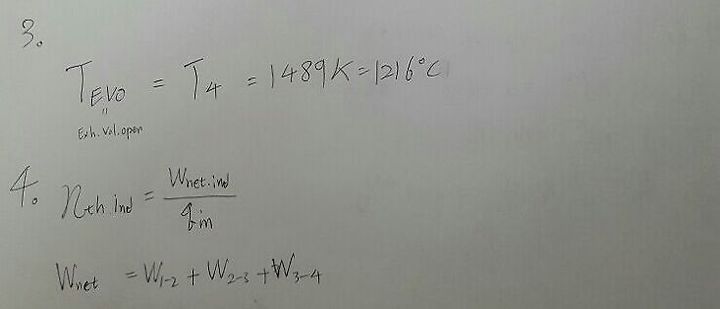 3.
T_EVO = T_4 = 1489K = 1216°C
"
Exh. Val. open
4. η_th.ind = W_net.ind / q_in
W_net = W_1-2 + W_2-3 + W_3-4